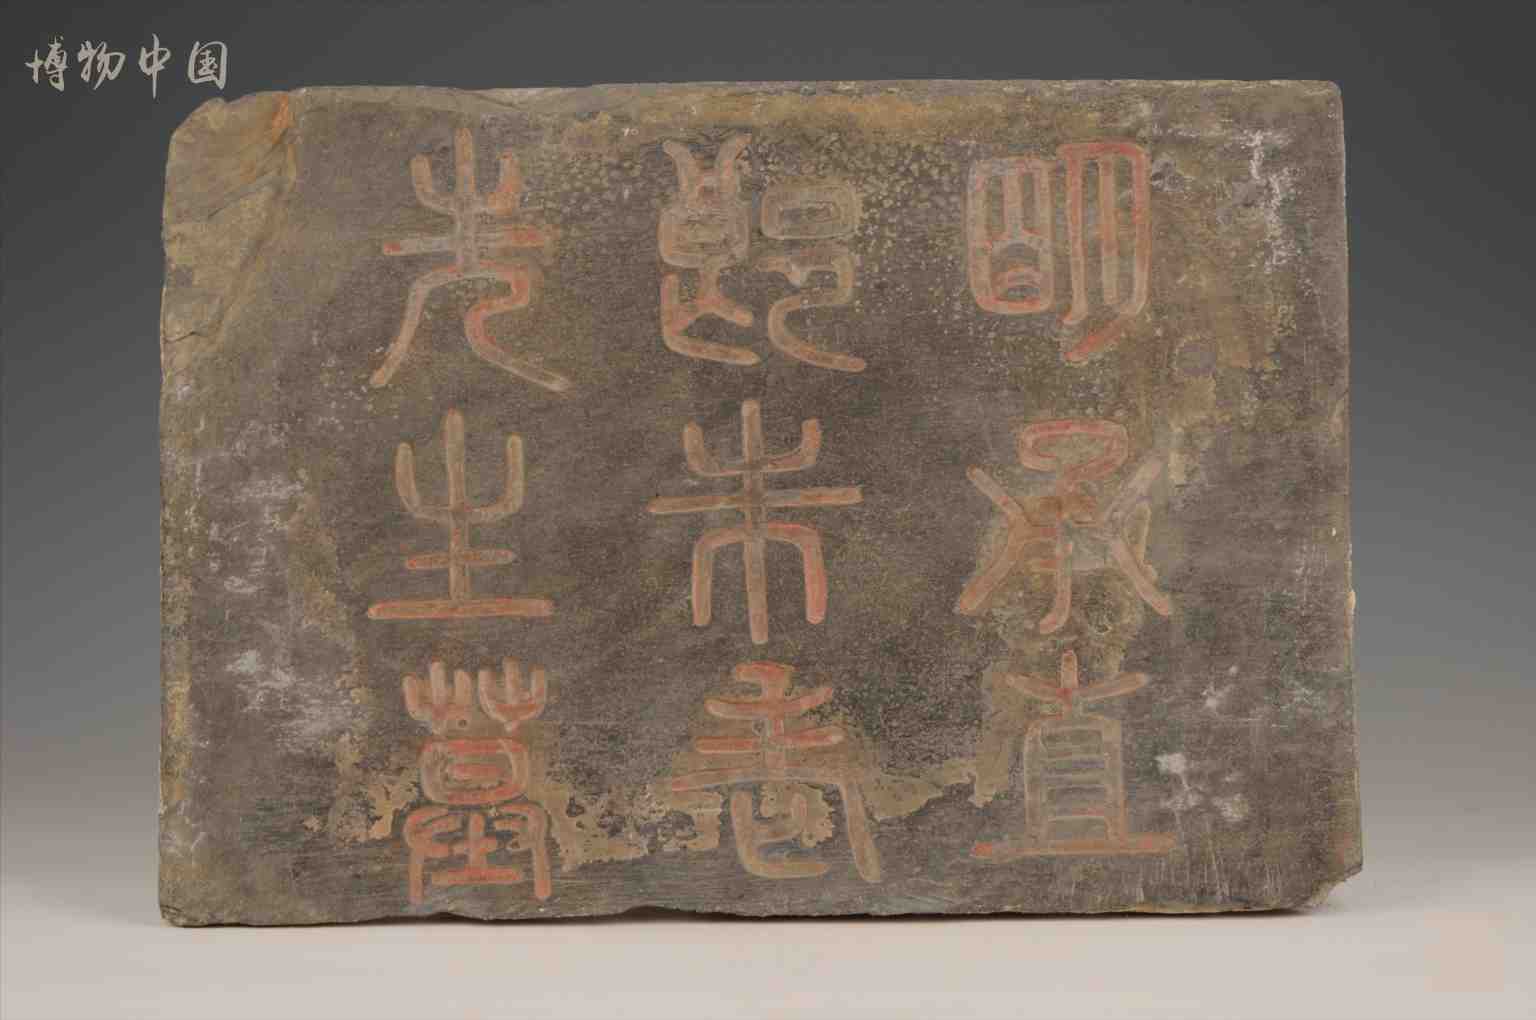 博物中国
明承直
郎朱
先生墓